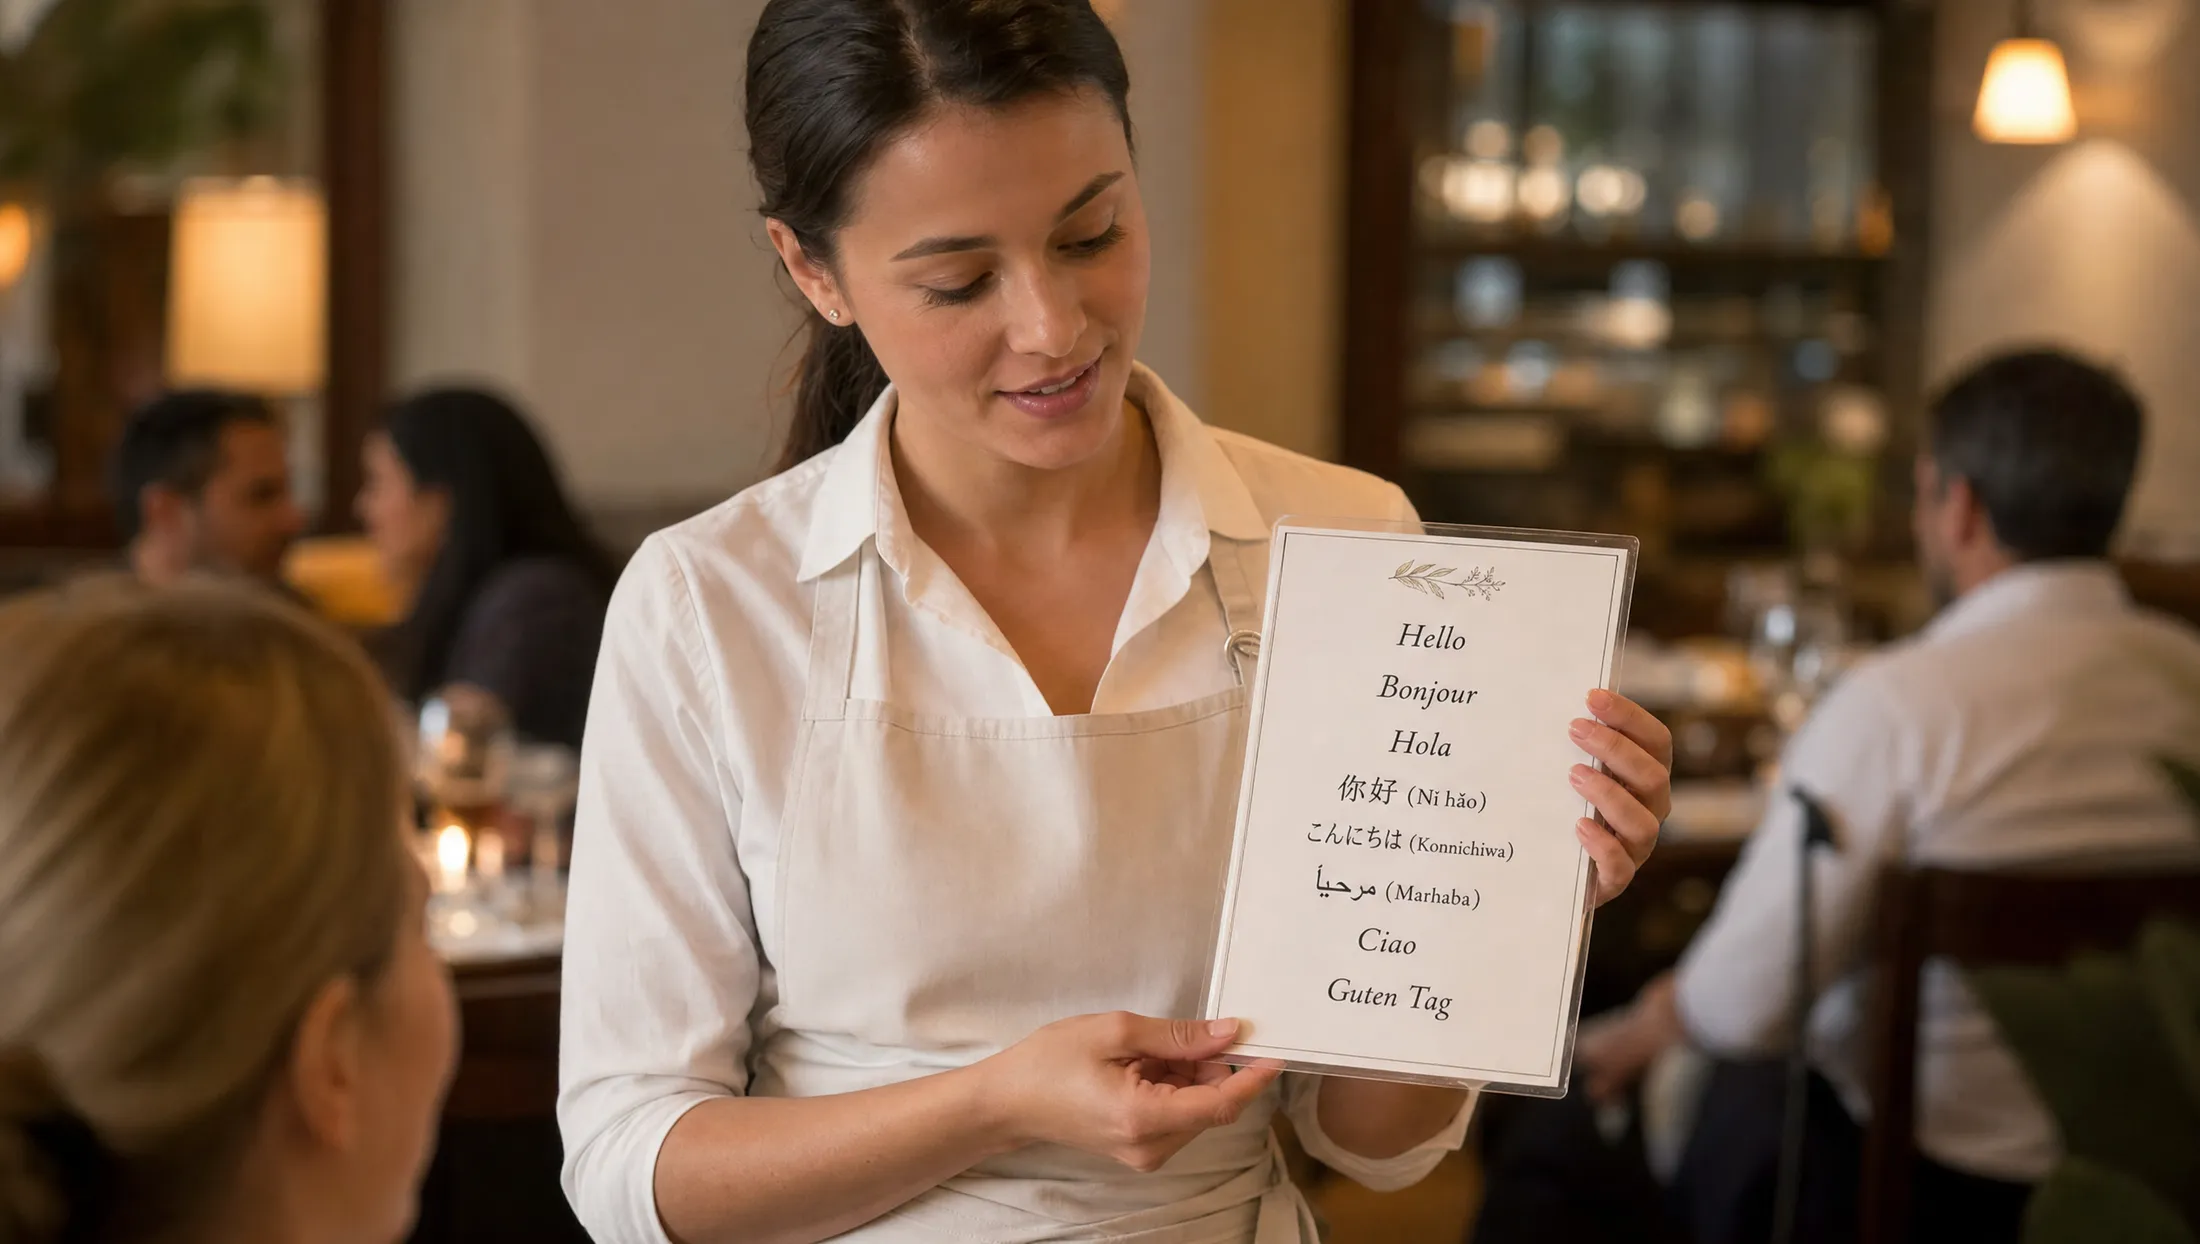 Hello
Bonjour
Hola
你好 (Nǐ hǎo)
こんにちは (Konnichiwa)
مرحباً (Marhaba)
Ciao
Guten Tag